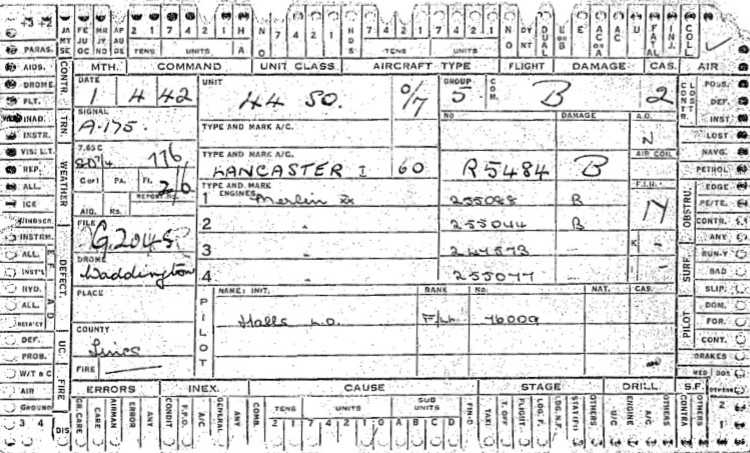 JA FE MR AP 2 1 7 4 2 1 H NO 7 4 2 1 NDS 7 4 2 1 7 4 2 1 NO DY NT DUAL E or B E AC or A AC U FATAL INJ. COLL
MY JU JY AU
SE OC ND DE TENS UNITS A TENS UNITS
PARAS.
MTH. COMMAND UNIT CLASS AIRCRAFT TYPE FLIGHT DAMAGE CAS. AIR
AIDS. CONTR. DATE UNIT GROUP COM. CONSTR. POSS.
DROME. 1 4 42 44 SQ. 0/7 5 B 2 DEF.
FLT. INST.
INAD. TRN. SIGNAL TYPE AND MARK A/C. NO DAMAGE A.O. LOST
INSTR. A.175. N
VIS: L.T. WEATHER 7.65C TYPE AND MARK A/C. AIR COLL NAVG.
REP. 116 LANCASTER I 60 R5484 B PETROL
ALL. Cor1 PA. FL. 2/6 TYPE AND MARK F.I.H. OBSTRU. EDGE
ICE REPORT No. 1 ENGINES Merlin XX 255088 B 14 PE/TE.
WINDSCR. AID. Ks. 2 " 255044 B CONTR.
INSTRM. DEFECT. FILE 3 " 247573 — K - ANY
ALL. G.2045 SURF. RUN-Y
INST'L DROME 4 " 255077 — I - BAD
HYD. Waddington SLIP.
ALL. PLACE PILOT NAME: INIT. RANK No. NAT. CAS. PILOT DOM.
Halls L.O. F/Lt. 76009 FOR.
DEF. UC. COUNTY CONT.
PROB. Lincs BRAKES
W/T & C FIRE FIRE MED DOS
AIR ERRORS INEX. CAUSE STAGE DRILL S.F.
GROUND GR. CARE CARE AIRMAN ERROR ANY CONDIT F.P.O. A/C GENERAL ANY COMB. TENS UNITS SUB UNITS FIN-D TAXI T. OFF FLIGHT LDG. F. LDG. N.F. STATIC OTHERS U/C ENGINE A/C. OTHERS CONTRA OTHERS
3 4 DIS 2 1 7 4 2 1 0 A B C D 2 1